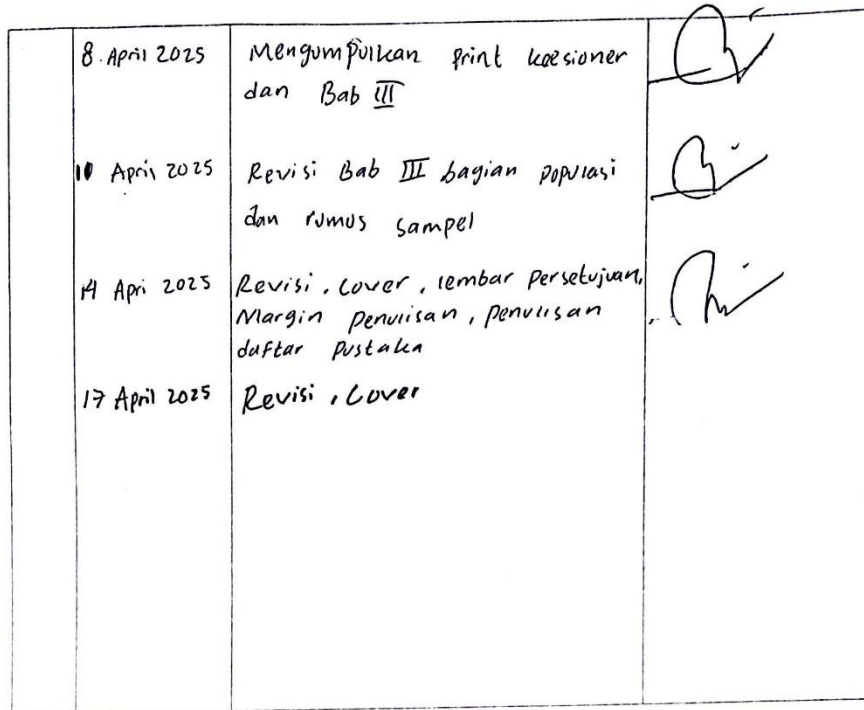 8 April 2025 Mengumpulkan print kuesioner
dan Bab III
10 April 2025 Revisi Bab III bagian populasi
dan rumus sampel
14 Apri 2025 Revisi, Cover, lembar persetujuan,
Margin penulisan, penulisan
daftar pustaka
17 April 2025 Revisi, Cover